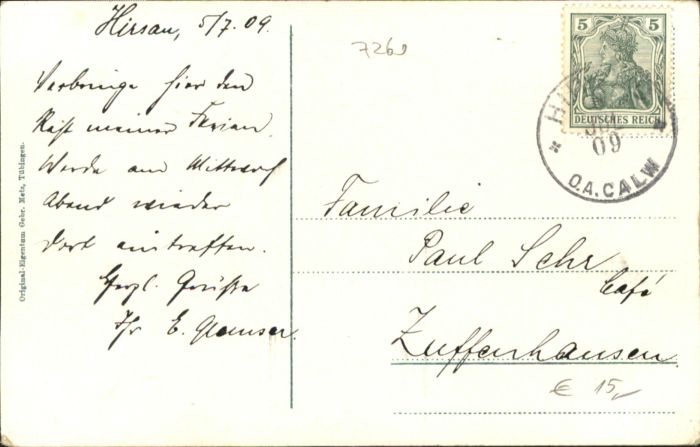 Hirsau, 5/7. 09.
Verbringe hier den
Rest meiner Ferien.
Werde am Mittwoch
Abend wieder
dort eintreffen.
Herzl. Grüße
Ihr E.
Original-Eigentum Gebr. Metz, Tübingen.
7260
5 5
DEUTSCHES REICH
09
O.A. CALW
Familie
Paul Sehr
Café
Zuffenhausen
€ 15,-